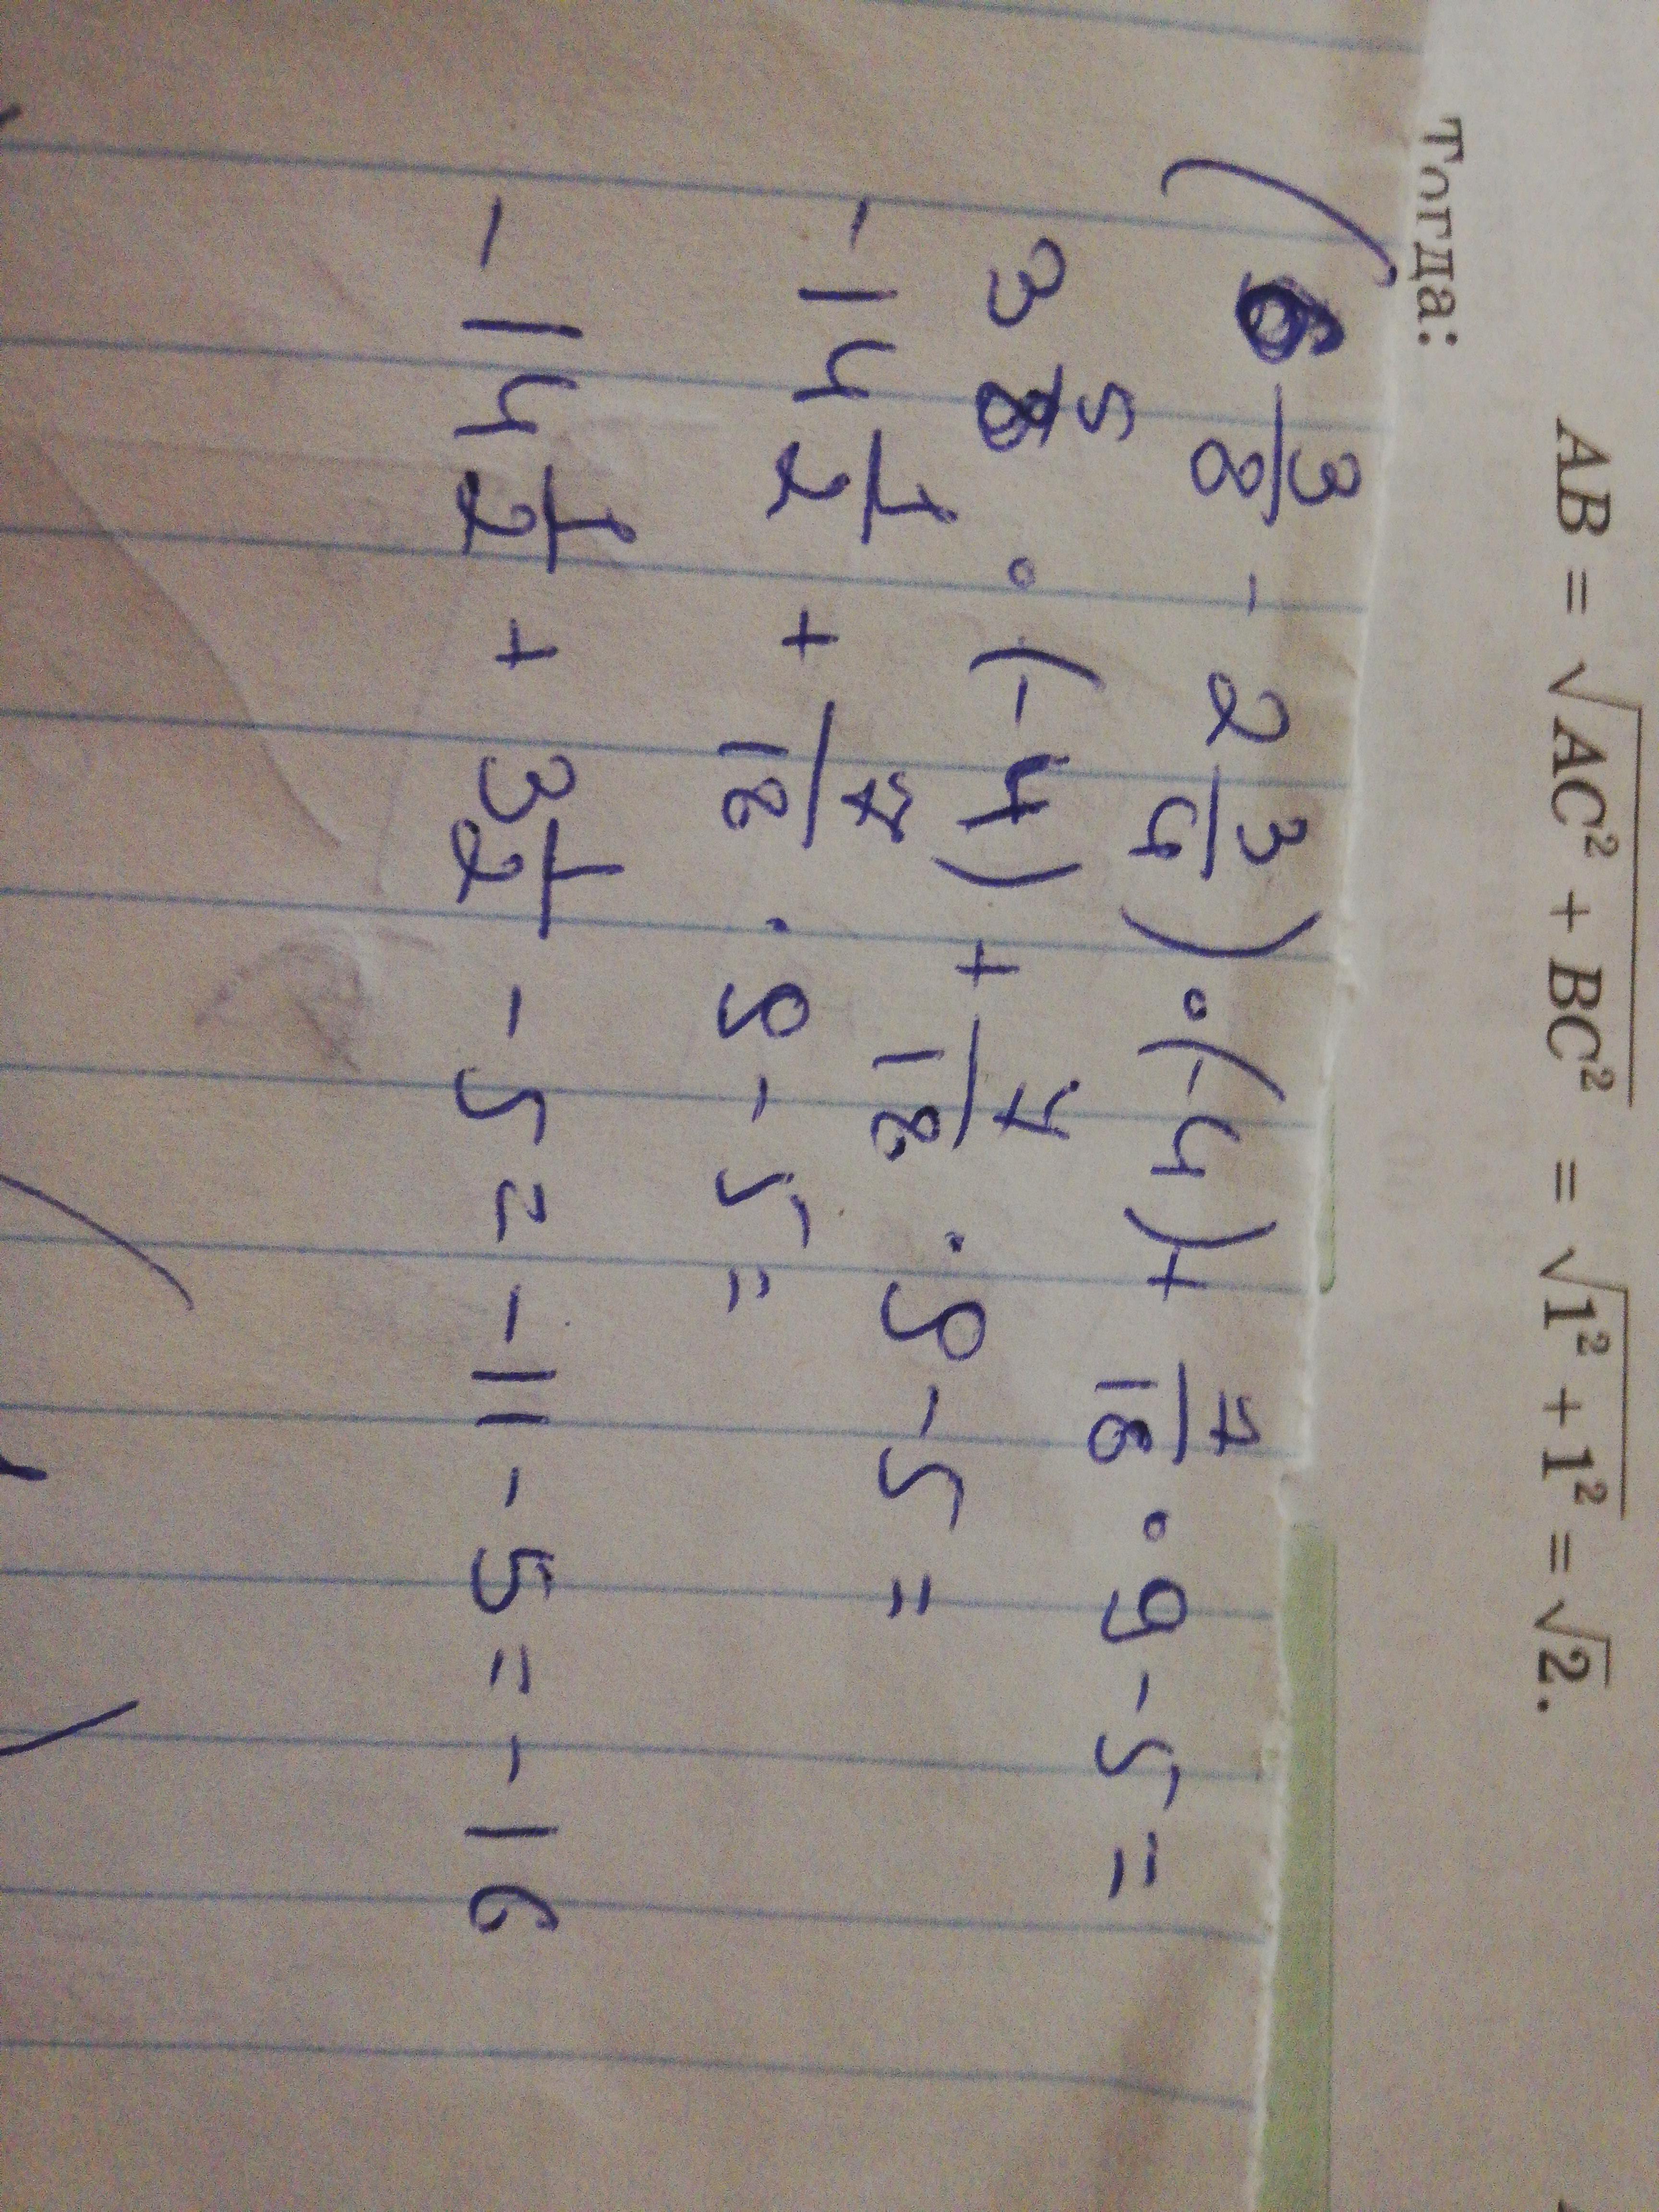 AB = √(AC² + BC²) = √(1² + 1²) = √2.
Тогда:
(6 3/8 - 2 3/4) · (-4) + 7/18 · 9 - 5 =
3 5/8 · (-4) + 7/18 · 9 - 5 =
- 14 1/2 + 7/18 · 9 - 5 =
- 14 1/2 + 3 1/2 - 5 = - 11 - 5 = - 16